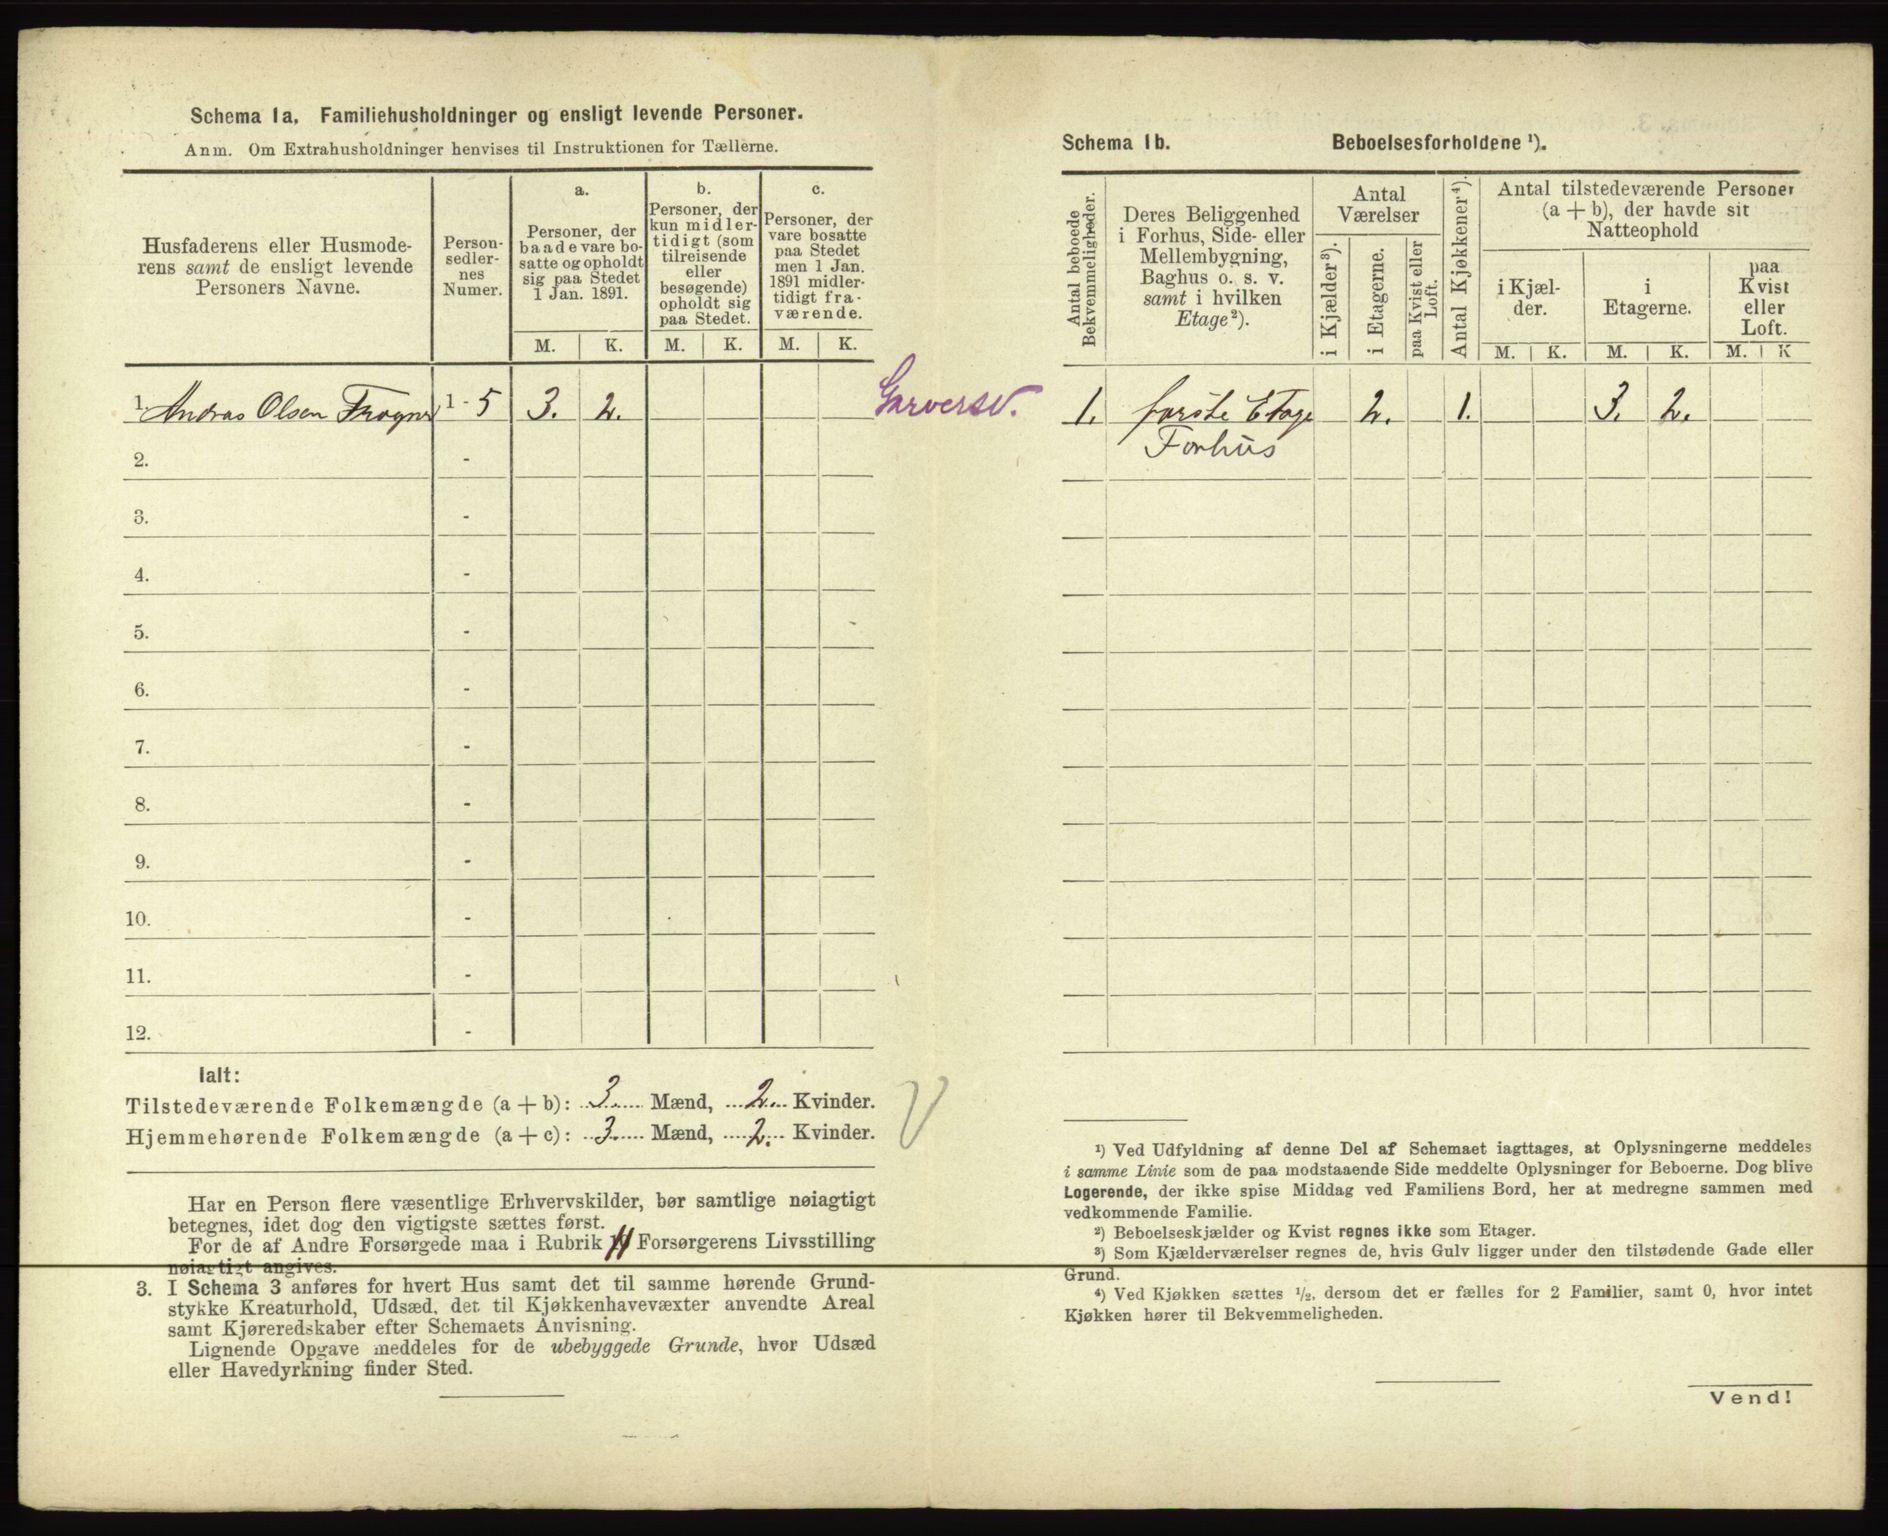 Schema 1a. Familiehusholdninger og ensligt levende Personer.
Anm. Om Extrahusholdninger henvises til Instruktionen for Tællerne.
Husfaderens eller Husmode-
rens samt de ensligt levende
Personers Navne.
Person-
sedler-
nes
Numer.
a.
Personer, der
baade vare bo-
satte og opholdt
sig paa Stedet
1 Jan. 1891.
b.
Personer, der
kun midler-
tidigt (som
tilreisende
eller
besøgende)
opholdt sig
paa Stedet.
c.
Personer, der
vare bosatte
paa Stedet
men 1 Jan.
1891 midler-
tidigt fra-
værende.
M. K. M. K. M. K.
1 Andras Olsen Frogner 1 - 5 3. 2.
2. -
3. -
4. -
5. -
6. -
7. -
8. -
9. -
10. -
11. -
12. -
Ialt:
Tilstedeværende Folkemængde (a + b): 3. Mænd, 2. Kvinder.
Hjemmehørende Folkemængde (a + c): 3. Mænd, 2. Kvinder.
Har en Person flere væsentlige Erhvervskilder, bør samtlige nøiagtigt
betegnes, idet dog den vigtigste sættes først.
For de af Andre Forsørgede maa i Rubrik 11 Forsørgerens Livsstilling
nøiagtigt angives.
3. I Schema 3 anføres for hvert Hus samt det til samme hørende Grund-
stykke Kreaturhold, Udsæd, det til Kjøkkenhavevæxter anvendte Areal
samt Kjøreredskaber efter Schemaets Anvisning.
Lignende Opgave meddeles for de ubebyggede Grunde, hvor Udsæd
eller Havedyrkning finder Sted.
Garversv.
Schema 1b. Beboelsesforholdene ¹).
Antal beboede
Bekvemmeligheder.
Deres Beliggenhed
i Forhus, Side- eller
Mellembygning,
Baghus o. s. v.
samt i hvilken
Etage²).
Antal
Værelser
i Kjælder³).
i Etagerne.
paa Kvist eller
Loft.
Antal Kjøkkener⁴).
Antal tilstedeværende Personer
(a + b), der havde sit
Natteophold
i Kjæl-
der.
i
Etagerne.
paa
Kvist
eller
Loft.
M. K. M. K. M. K
1. første Etage 2. 1. 3. 2.
Forhus
¹) Ved Udfyldning af denne Del af Schemaet iagttages, at Oplysningerne meddeles
i samme Linie som de paa modstaaende Side meddelte Oplysninger for Beboerne. Dog blive
Logerende, der ikke spise Middag ved Familiens Bord, her at medregne sammen med
vedkommende Familie.
²) Beboelseskjælder og Kvist regnes ikke som Etager.
³) Som Kjælderværelser regnes de, hvis Gulv ligger under den tilstødende Gade eller
Grund.
⁴) Ved Kjøkken sættes ½, dersom det er fælles for 2 Familier, samt 0, hvor intet
Kjøkken hører til Bekvemmeligheden.
Vend!